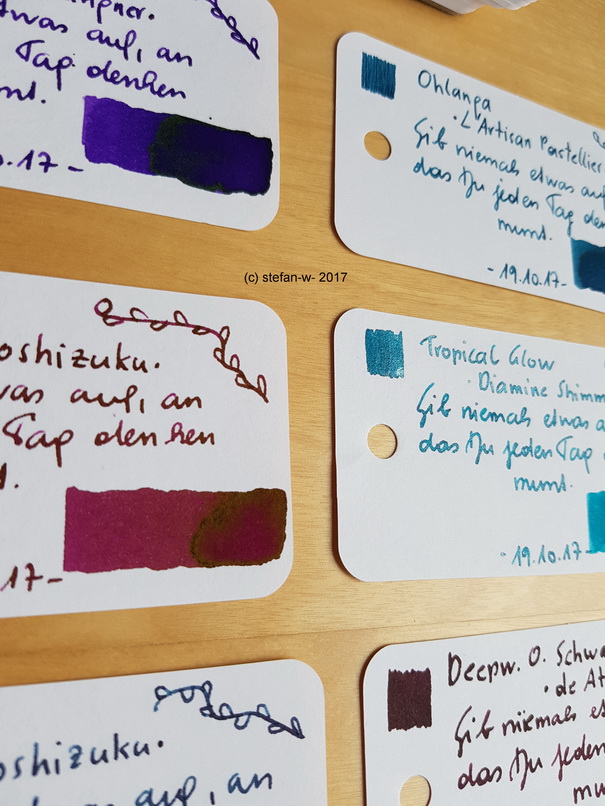 mpner.
twas auf, an
Tag denken
.17 -
Ohlanga
· L'Artisan Pastellier
Gib niemals etwas auf
das Du jeden Tag den
musst.
- 19.10.17-
(c) stefan-w- 2017
oshizuku.
was auf, an
Tag denken
t.
17-
Tropical Glow
· Diamine Shimm
Gib niemals etwas a
das Du jeden Tag
musst.
- 19.10.17-
oshizuku.
auf, an
Deepw. O. Schwa
· de At
Gib niemals et
das Du jeden
mu